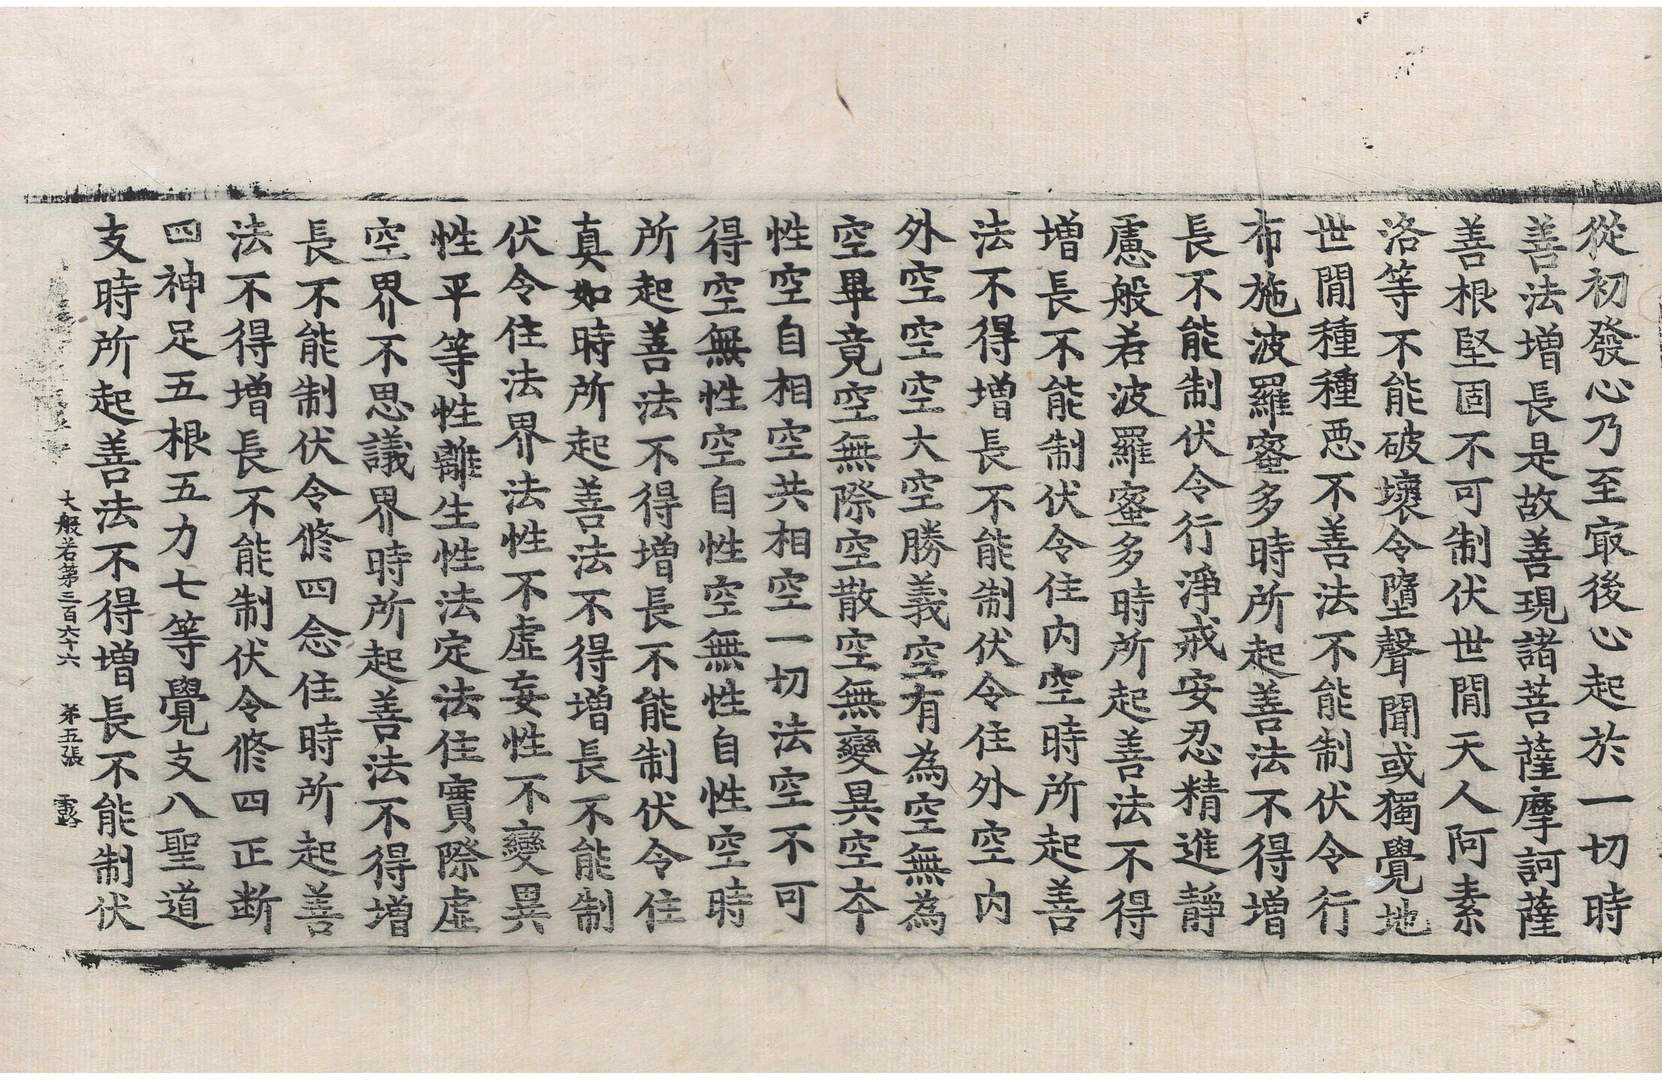 從初發心乃至冣後心起於一切時
善法增長是故善現諸菩薩摩訶薩
善根堅固不可制伏世閒天人阿素
洛等不能破壞令墮聲聞或獨覺地
世閒種種惡不善法不能制伏令行
布施波羅蜜多時所起善法不得增
長不能制伏令行淨戒安忍精進靜
慮般若波羅蜜多時所起善法不得
增長不能制伏令住內空時所起善
法不得增長不能制伏令住外空內
外空空空大空勝義空有為空無為
空畢竟空無際空散空無變異空本
性空自相空共相空一切法空不可
得空無性空自性空無性自性空時
所起善法不得增長不能制伏令住
真如時所起善法不得增長不能制
伏令住法界法性不虛妄性不變異
性平等性離生性法定法住實際虛
空界不思議界時所起善法不得增
長不能制伏令修四念住時所起善
法不得增長不能制伏令修四正斷
四神足五根五力七等覺支八聖道
支時所起善法不得增長不能制伏
大般若第三百六十六 第五張 露